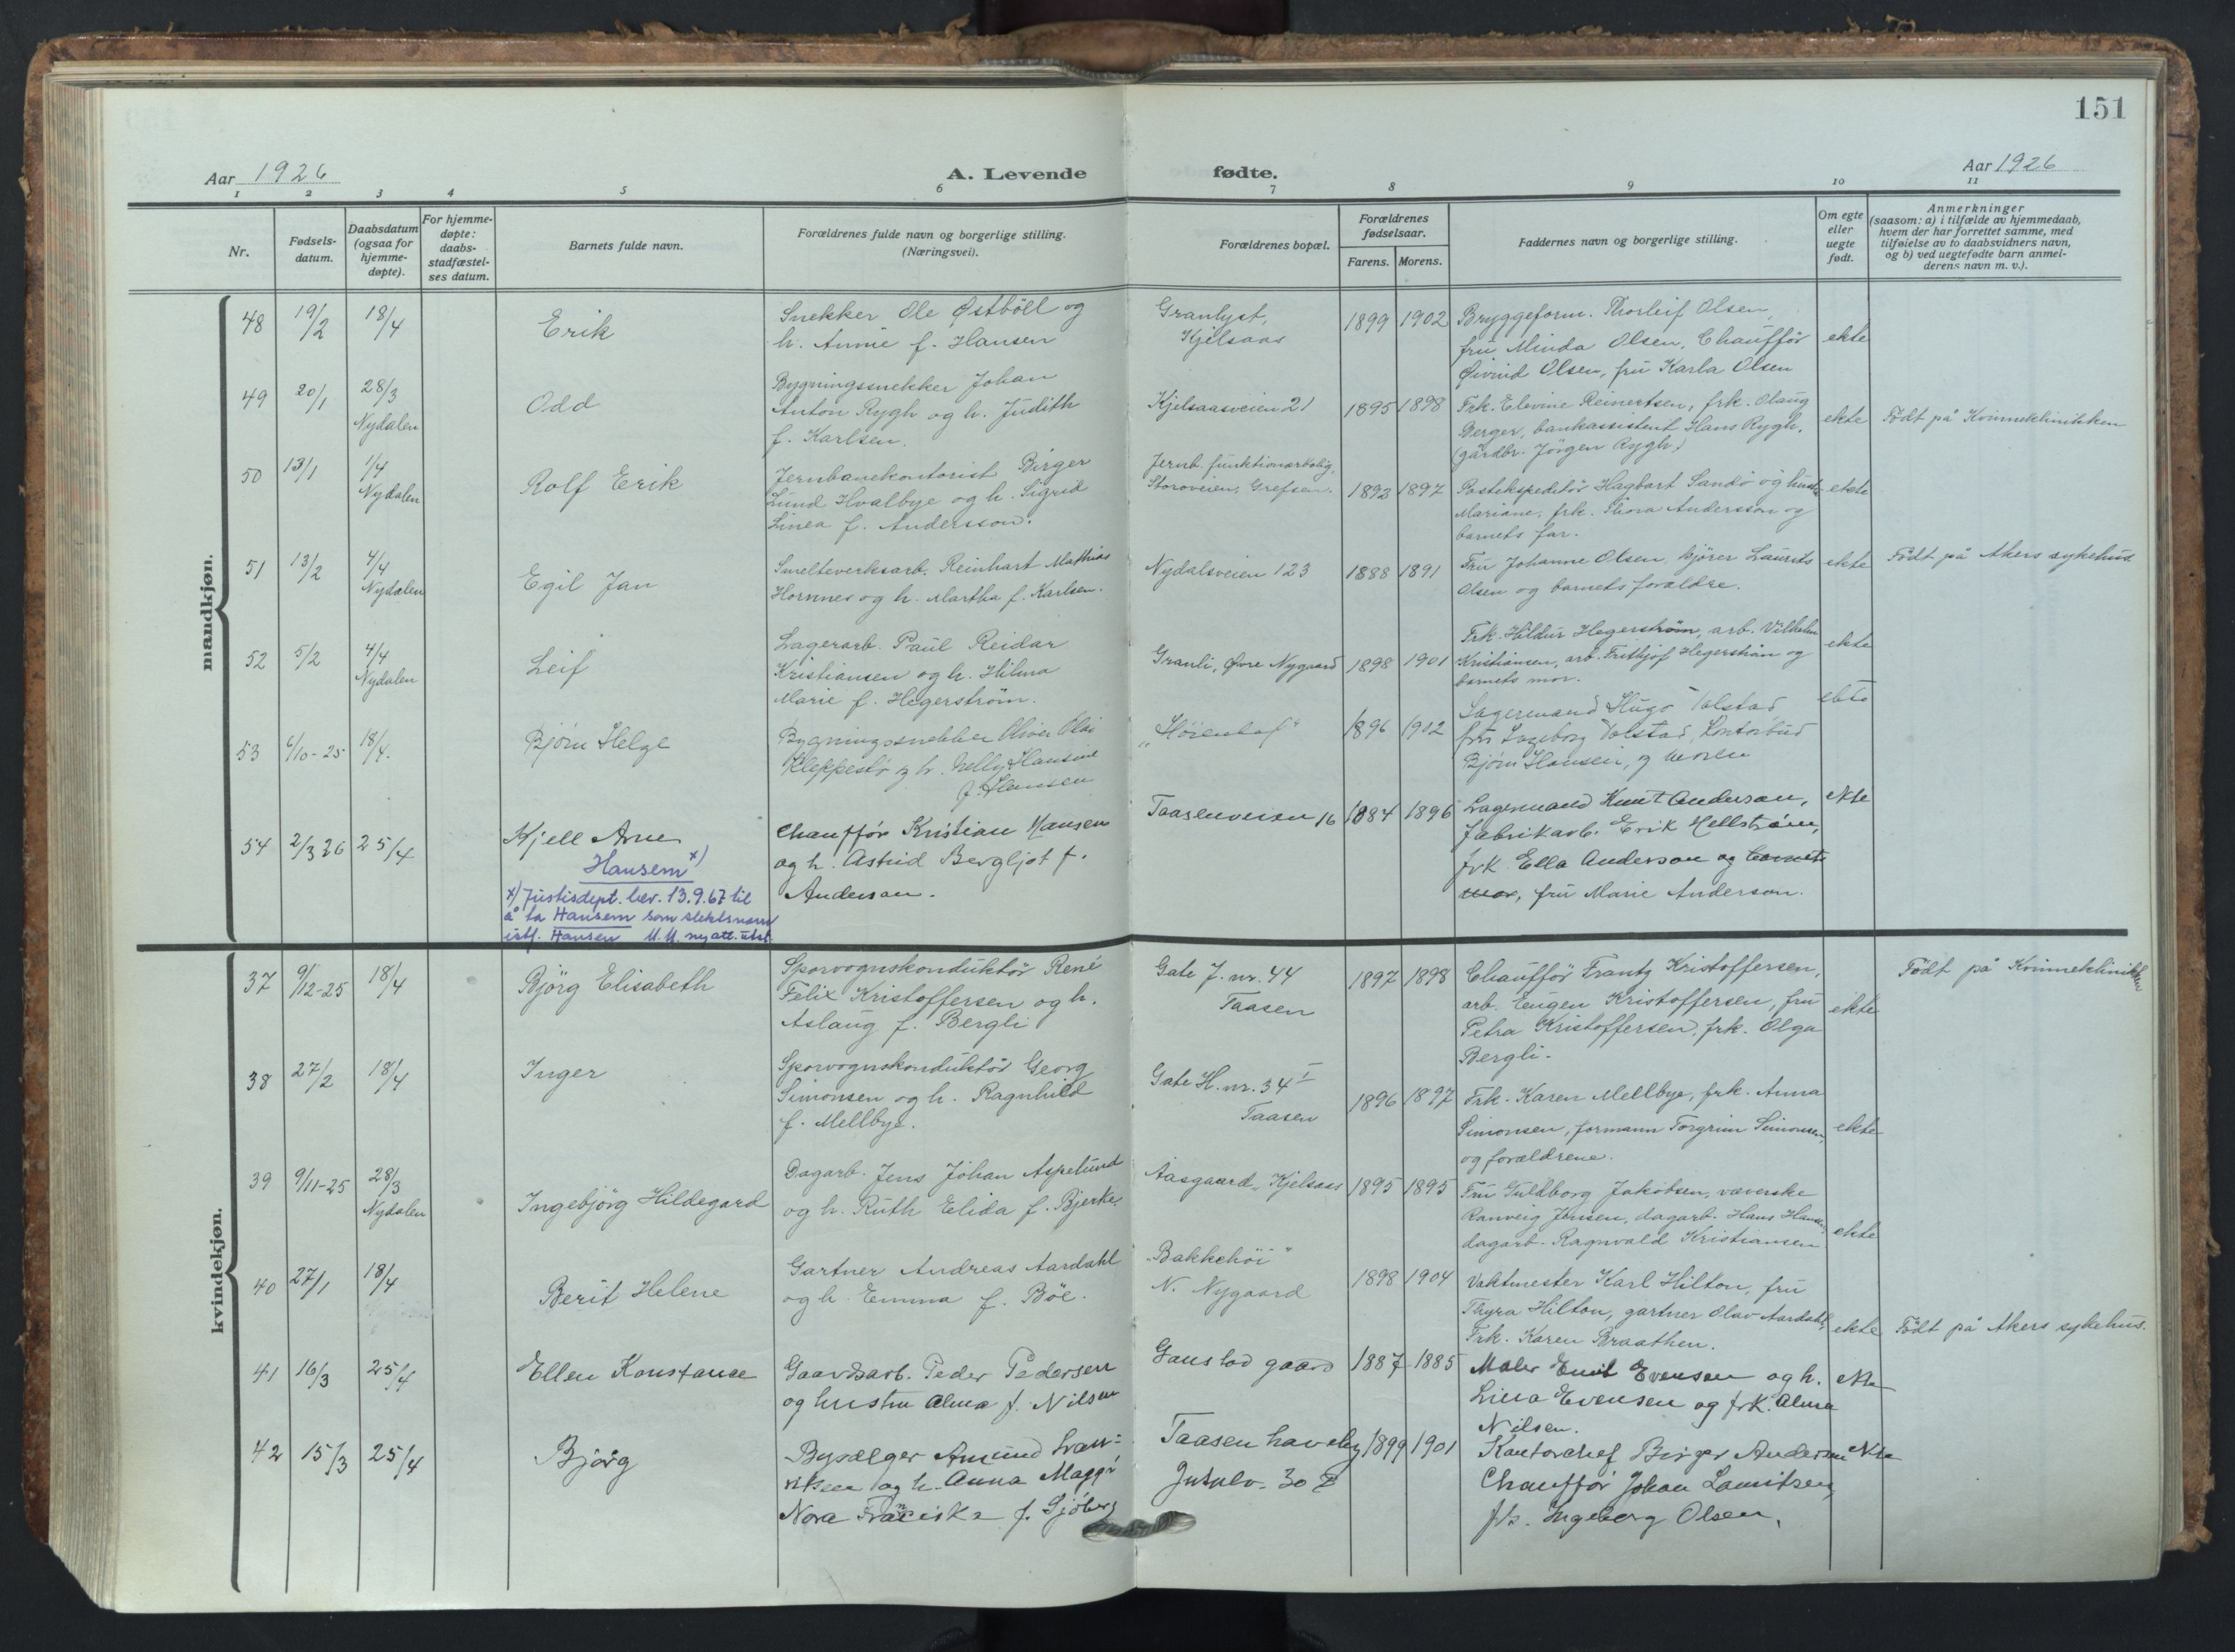 151
Aar 1926
A. Levende fødte.
Aar 1926
1 2 3 4 5 6 7 8 9 10 11
Nr.
Fødsels-
datum.
Daabsdatum
(ogsaa for
hjemme-
døpte).
For hjemme-
døpte:
daabs-
stadfæstel-
ses datum.
Barnets fulde navn.
Forældrenes fulde navn og borgerlige stilling.
(Næringsvei).
Forældrenes bopæl.
Forældrenes
fødselsaar.
Farens. Morens.
Faddernes navn og borgerlige stilling.
Om egte
eller
uegte
født.
Anmerkninger
(saasom: a) i tilfælde av hjemmedaab,
hvem der har forrettet samme, med
tilføielse av to daabsvidners navn,
og b) ved uegtefødte barn anmel-
derens navn m. v.).
mandkjøn.
48 19/2 18/4
Erik
Snekker Ole Østböll og
h. Annie f. Hansen
Granlyst,
Kjelsaas
1899 1902
Bryggeform. Thorleif Olsen,
fru Minda Olsen, Chauffør
Øivind Olsen, fru Karla Olsen
ekte
49 20/1 28/3
Nydalen
Odd
Bygningssnekker Johan
Anton Rygh og h. Judith
f. Karlsen.
Kjelsaasveien 21
1895 1898
Frk. Elevine Reinertsen, frk. Olaug
Berger, bankassistent Hans Rygh,
(gårdbr. Jörgen Rygh.)
ekte
Födt på Kvinneklinikken
50 13/1 1/4
Nydalen
Rolf Erik
Jernbanekontorist Birger
Lund Hvalbye og h. Sigrid
Linea f. Andersson.
Jernb. funktionærbolig,
Storoveien, Grefsen.
1893 1897
Postekspeditör Hagbart Sandö og hustru
Mariane, frk. Thora Andersson og
barnets far.
ekte
51 13/2 4/4
Nydalen
Egil Jan
Smelteverksarb. Reinhart Mathias
Hornnes og h. Martha f. Karlsen.
Nydalsveien 123
1888 1891
Fru Johanne Olsen, kjörer Laurits
Olsen og barnets forældre.
ekte
Födt på Akers sykehus.
52 5/2 4/4
Nydalen
Leif
Lagerarb. Paul Reidar
Kristiansen og h. Hilma
Marie f. Hegerström.
Granli, Övre Nygaard
1898 1901
Frk. Hildur Hegerström, arb. Vilhelm
Kristiansen, arb. Frithjof Hegerström og
barnets mor.
ekte
53 6/10-25 18/4.
Bjørn Helge
Bygningssnekker Oliver Olai
Kleppestø og h. Nelly Hansine
f. Hansen
1896 1902
Lagermand Hugo Tolstad
fru Ingeborg Tolstad, Kontorbud
Bjørn Hansen, og moren
ekte
54 2/3 26 25/4
Kjell Arne
Hansem x)
x) Justisdept. bev. 13.9.67 til
å ta Hansem som slektsnavn
istf. Hansen U.U. ny att. utst.
Chauffør Kristian Hansen
og h. Astrid Bergljot f.
Anderson.
Taasenveien 16
1884 1896
Lagermand Knut Anderson,
fabrikarb. Erik Hellstrøm,
frk. Ella Anderson og barnets
mor, fru Marie Anderson.
ekte
kvindekjøn.
37 9/12-25 18/4
Björg Elisabeth
Sporvognskonduktör René
Felix Kristoffersen og h.
Aslaug f. Bergli
Gate J. nr. 44
Taasen
1897 1898
Chaufför Frantz Kristoffersen,
arb. Eugen Kristoffersen, fru
Petra Kristoffersen, frk. Olga
Bergli.
ekte
Födt på Kvinneklinikken
38 27/2 18/4
Inger
Sporvognskonduktör Georg
Simonsen og h. Ragnhild
f. Mellbye.
Gate H. nr. 34 I
Taasen
1896 1897
Frk. Karen Mellbye, frk. Anna
Simonsen, formann Torgrim Simonsen,
og forældrene.
ekte
39 9/11-25 28/3
Nydalen
Ingebjörg Hildegard
Dagarb. Jens Johan Aspelund
og h. Ruth Elida f. Bjerke.
Aasgaard, Kjelsaas
1895 1895
Fru Guldborg Jakobsen, væverske
Ranveig Jensen, dagarb. Hans Hansen,
dagarb. Ragnvald Kristiansen
ekte
40 27/1 18/4
Berit Helene
Gartner Andreas Aardahl
og h. Emma f. Böe.
"Bakkehöi"
N. Nygaard
1898 1904
Vaktmester Karl Hilton, fru
Thyra Hilton, gartner Olav Aardahl,
Frk. Karen Braathen.
ekte
Födt på Akers sykehus.
41 16/3 25/4
Ellen Konstance
Gaardsarb. Peder Pedersen
og hustru Alma f. Nilsen
Gaustad gaard
1887 1885
Maler Emil Evensen og h.
Lina Evensen og frk. Alma
Nilsen.
ekte
42 15/3 25/4
Bjørg
Bysælger Amund
og h. Anna Maggi
Nora Franciska f. Sjøberg
Taasen haveby
30
1899 1901
Kontorchef Birger Andersen
Chauffør Johan Lauritsen,
frk. Ingeborg Olsen.
ekte